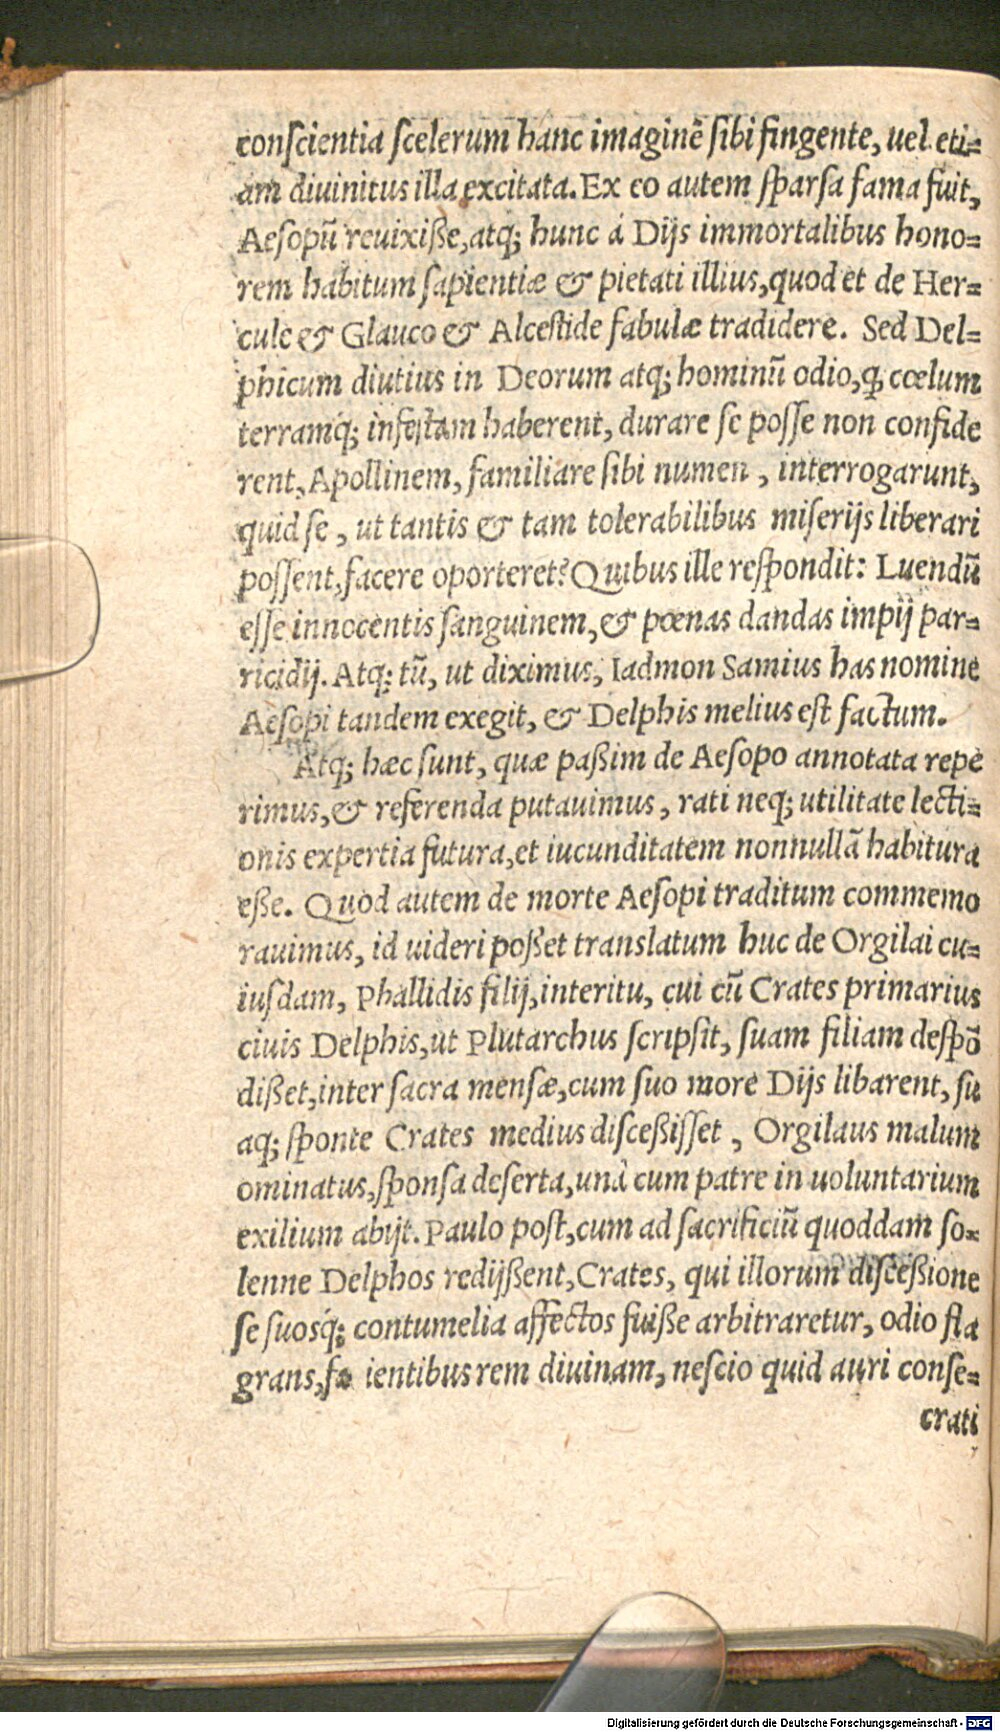 conſcientia ſcelerum hanc imaginē ſibi fingente, uel eti⸗
am diuinitus illa excitata. Ex eo autem ſparſa fama fuit,
Aeſopū reuixiße, atq; hunc á Dijs immortalibus hono⸗
rem habitum ſapientiæ & pietati illius, quod et de Her⸗
cule & Glauco & Alceſtide fabulæ tradidere. Sed Del⸗
phicum diutius in Deorum atq; hominū odio, ꝙ cœlum
terramq́; infeſtam haberent, durare ſe poſſe non confide
rent, Apollinem, familiare ſibi numen, interrogarunt,
quid ſe, ut tantis & tam tolerabilibus miſerijs liberari
poſſent, facere oporteret? Quibus ille reſpondit: Luendū
eſſe innocentis ſanguinem, & pœnas dandas impij par⸗
ricidij. Atq; tū, ut diximus, Iadmon Samius has nomine
Aeſopi tandem exegit, & Delphis melius eſt factum.
Atq; hæc ſunt, quæ paßim de Aeſopo annotata repe
rimus, & referenda putauimus, rati neq; utilitate lecti⸗
onis expertia futura, et iucunditatem nonnullā habitura
eße. Quod autem de morte Aeſopi traditum commemo
rauimus, id uideri poßet translatum huc de Orgilai cu⸗
iuſdam, Phallidis filij, interitu, cui cū Crates primarius
ciuis Delphis, ut Plutarchus ſcripſit, ſuam filiam deſpō
dißet, inter ſacra menſæ, cum ſuo more Dijs libarent, ſu
aq; ſponte Crates medius diſceßiſſet, Orgilaus malum
ominatus, ſponſa deſerta, unà cum patre in uoluntarium
exilium abijt. Paulo poſt, cum ad ſacrificiū quoddam ſo⸗
lenne Delphos redijßent, Crates, qui illorum diſceßione
ſe ſuosq́; contumelia affectos fuiße arbitraretur, odio fla
grans, fa ientibus rem diuinam, neſcio quid auri conſe⸗
crati
Digitalisierung gefördert durch die Deutsche Forschungsgemeinschaft - DFG